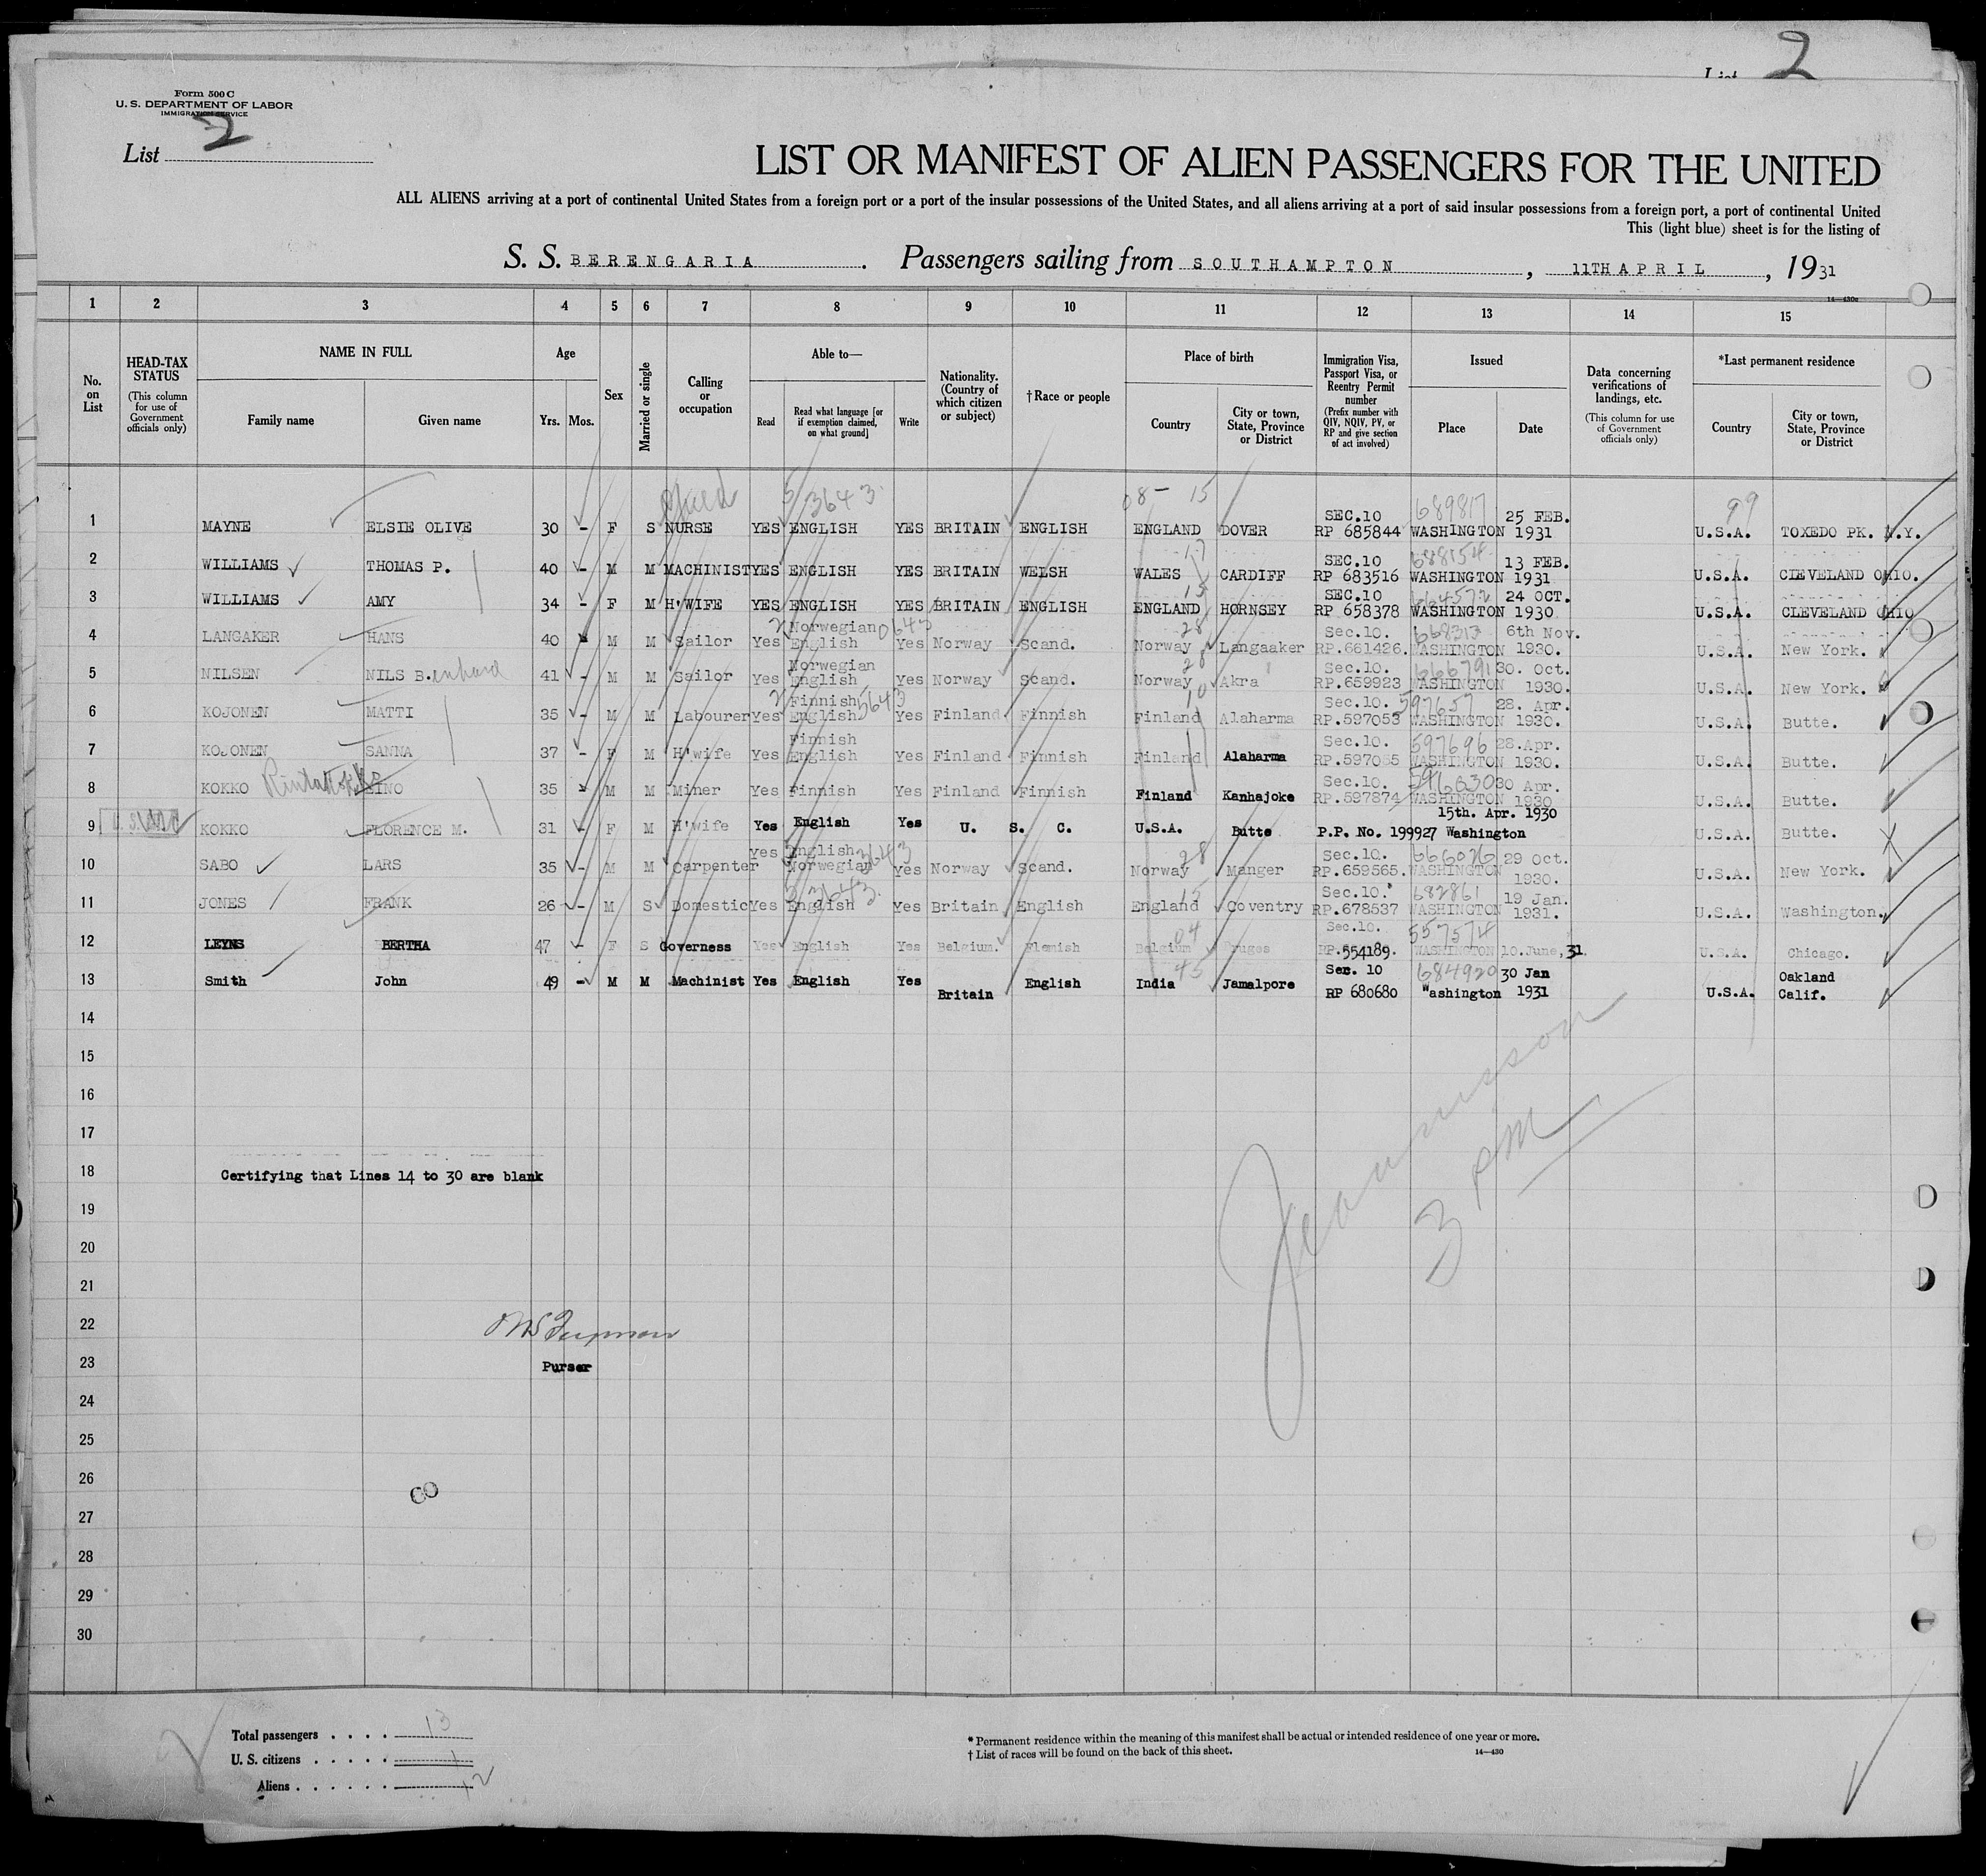 List 2
Form 500 C
U. S. DEPARTMENT OF LABOR
IMMIGRATION SERVICE
List 2
LIST OR MANIFEST OF ALIEN PASSENGERS FOR THE UNITED
ALL ALIENS arriving at a port of continental United States from a foreign port or a port of the insular possessions of the United States, and all aliens arriving at a port of said insular possessions from a foreign port, a port of continental United
This (light blue) sheet is for the listing of
S. S. BERENGARIA . Passengers sailing from SOUTHAMPTON , 11TH APRIL , 19 31
14—430c
1 2 3 4 5 6 7 8 9 10 11 12 13 14 15
No. on List
HEAD-TAX STATUS (This column for use of Government officials only)
NAME IN FULL Family name Given name
Age Yrs. Mos.
Sex
Married or single
Calling or occupation
Able to— Read Read what language [or if exemption claimed, on what ground] Write
Nationality. (Country of which citizen or subject)
†Race or people
Place of birth Country City or town, State, Province or District
Immigration Visa, Passport Visa, or Reentry Permit number (Prefix number with QIV, NQIV, PV, or RP and give section of act involved)
Issued Place Date
Data concerning verifications of landings, etc. (This column for use of Government officials only)
*Last permanent residence Country City or town, State, Province or District
3/3643 08- 15 689817 99
1 MAYNE ELSIE OLIVE 30 - F S NURSE YES ENGLISH YES BRITAIN ENGLISH ENGLAND DOVER SEC.10 RP 685844 WASHINGTON 25 FEB. 1931 U.S.A. TOXEDO PK. N.Y.
17 688154
2 WILLIAMS THOMAS P. 40 - M M MACHINIST YES ENGLISH YES BRITAIN WELSH WALES CARDIFF SEC.10 RP 683516 WASHINGTON 13 FEB. 1931 U.S.A. CLEVELAND OHIO.
15 664572
3 WILLIAMS AMY 34 - F M H'WIFE YES ENGLISH YES BRITAIN ENGLISH ENGLAND HORNSEY SEC.10 RP 658378 WASHINGTON 24 OCT. 1930 U.S.A. CLEVELAND OHIO
28 668313
4 LANGAKER HANS 40 - M M Sailor Yes Norwegian English Yes Norway Scand. Norway Langaaker Sec.10. RP.661426. WASHINGTON 6th Nov. 1930. U.S.A. New York.
28 666791
5 NILSEN NILS B.enhard 41 - M M Sailor Yes Norwegian English Yes Norway Scand. Norway Akra Sec.10. RP.659923 WASHINGTON 30. Oct. 1930. U.S.A. New York.
5643 10 597657
6 KOJONEN MATTI 35 - M M Labourer Yes Finnish English Yes Finland Finnish Finland Alaharma Sec.10. RP.597053 WASHINGTON 28. Apr. 1930. U.S.A. Butte.
597696
7 KOJONEN SANNA 37 - F M H'wife Yes Finnish English Yes Finland Finnish Finland Alaharma Sec.10. RP.597085 WASHINGTON 28.Apr. 1930. U.S.A. Butte.
8 KOKKO EINO 35 - M M Miner Yes Finnish Yes Finland Finnish Finland Kanhajoke Sec.10. RP.597874 WASHINGTON 30 Apr. 1930 U.S.A. Butte.
9 KOKKO FLORENCE M. 31 - F M H'wife Yes English Yes U. S. C. U.S.A. Butte 15th. Apr. 1930 P.P. No. 199927 Washington U.S.A. Butte.
3643 28 666026
10 SABO LARS 35 - M M Carpenter yes English Norwegian Yes Norway Scand. Norway Manger Sec.10. RP.659565. WASHINGTON 29 Oct. 1930. U.S.A. New York.
3/3643. 15 682861
11 JONES FRANK 26 - M S Domestic Yes English Yes Britain English England Coventry Sec.10. RP.678537 WASHINGTON 19 Jan. 1931. U.S.A. Washington.
04 557574
12 LEYNS BERTHA 47 - F S Governess Yes English Yes Belgium. Flemish Belgium Bruges Sec.10. RP.554189. WASHINGTON 10.June,31. U.S.A. Chicago.
45 684920
13 Smith John 49 - M M Machinist Yes English Yes Britain English India Jamalpore Sec. 10 RP 680680 Washington 30 Jan 1931 U.S.A. Oakland Calif.
14
15
16
17
18 Certifying that Lines 14 to 30 are blank
19
20
3 PM
21
22
23 Purser
24
25
26
27
28
29
30
Total passengers . . . . 13
U. S. citizens . . . . . 1
Aliens . . . . . . 12
* Permanent residence within the meaning of this manifest shall be actual or intended residence of one year or more.
† List of races will be found on the back of this sheet.
14—430